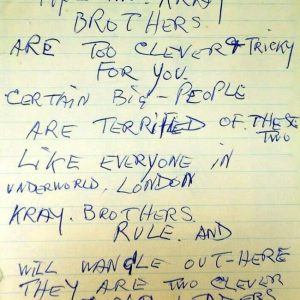 KRAY
BROTHERS.
ARE TOO CLEVER & TRICKY
FOR YOU.
CERTAIN BIG-PEOPLE
ARE TERRIFIED OF. THESE
TWO
LIKE EVERYONE IN
UNDERWORLD. LONDON
KRAY. BROTHERS.
RULE. AND
WILL WANGLE OUT-HERE
THEY ARE TWO CLEVER